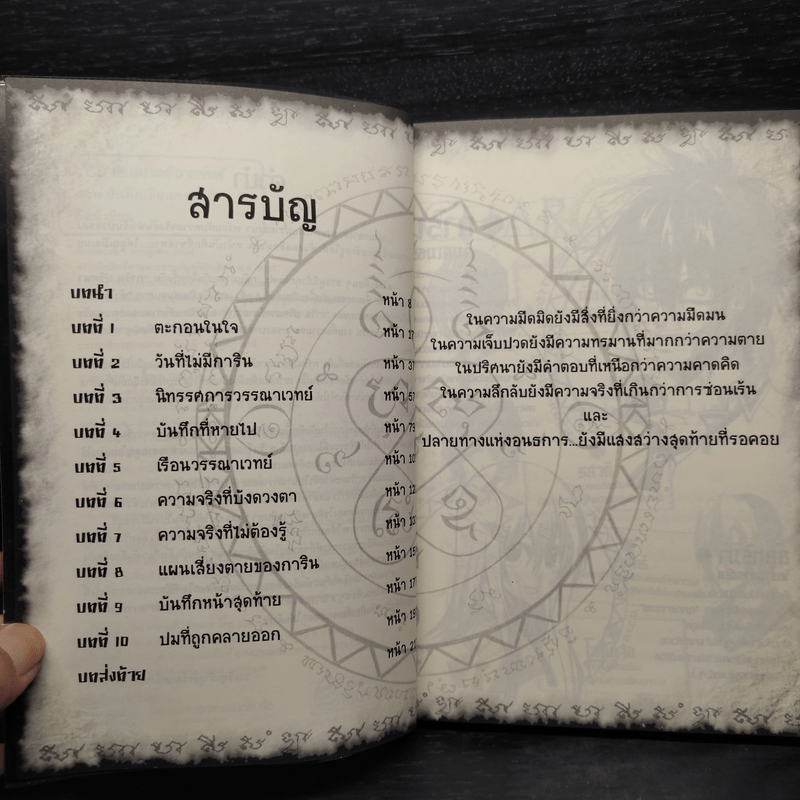 สารบัญ
บทนำ หน้า 8
บทที่ 1 ตะกอนในใจ หน้า
บทที่ 2 วันที่ไม่มีการิน หน้า 37
บทที่ 3 นิทรรศการวรรณาเวทย์ หน้า 57
บทที่ 4 บันทึกที่หายไป หน้า 79
บทที่ 5 เรือนวรรณาเวทย์ หน้า
บทที่ 6 ความจริงที่บังดวงตา หน้า
บทที่ 7 ความจริงที่ไม่ต้องรู้ หน้า
บทที่ 8 แผนเสี่ยงตายของการิน หน้า
บทที่ 9 บันทึกหน้าสุดท้าย หน้า
บทที่ 10 ปมที่ถูกคลายออก หน้า
บทส่งท้าย
ในความมืดมิดยังมีสิ่งที่ยิ่งกว่าความมืดมน
ในความเจ็บปวดยังมีความทรมานที่มากกว่าความตาย
ในปริศนายังมีคำตอบที่เหนือกว่าความคาดคิด
ในความลึกลับยังมีความจริงที่เกินกว่าการซ่อนเร้น
และ
ปลายทางแห่งอนธการ...ยังมีแสงสว่างสุดท้ายที่รอคอย